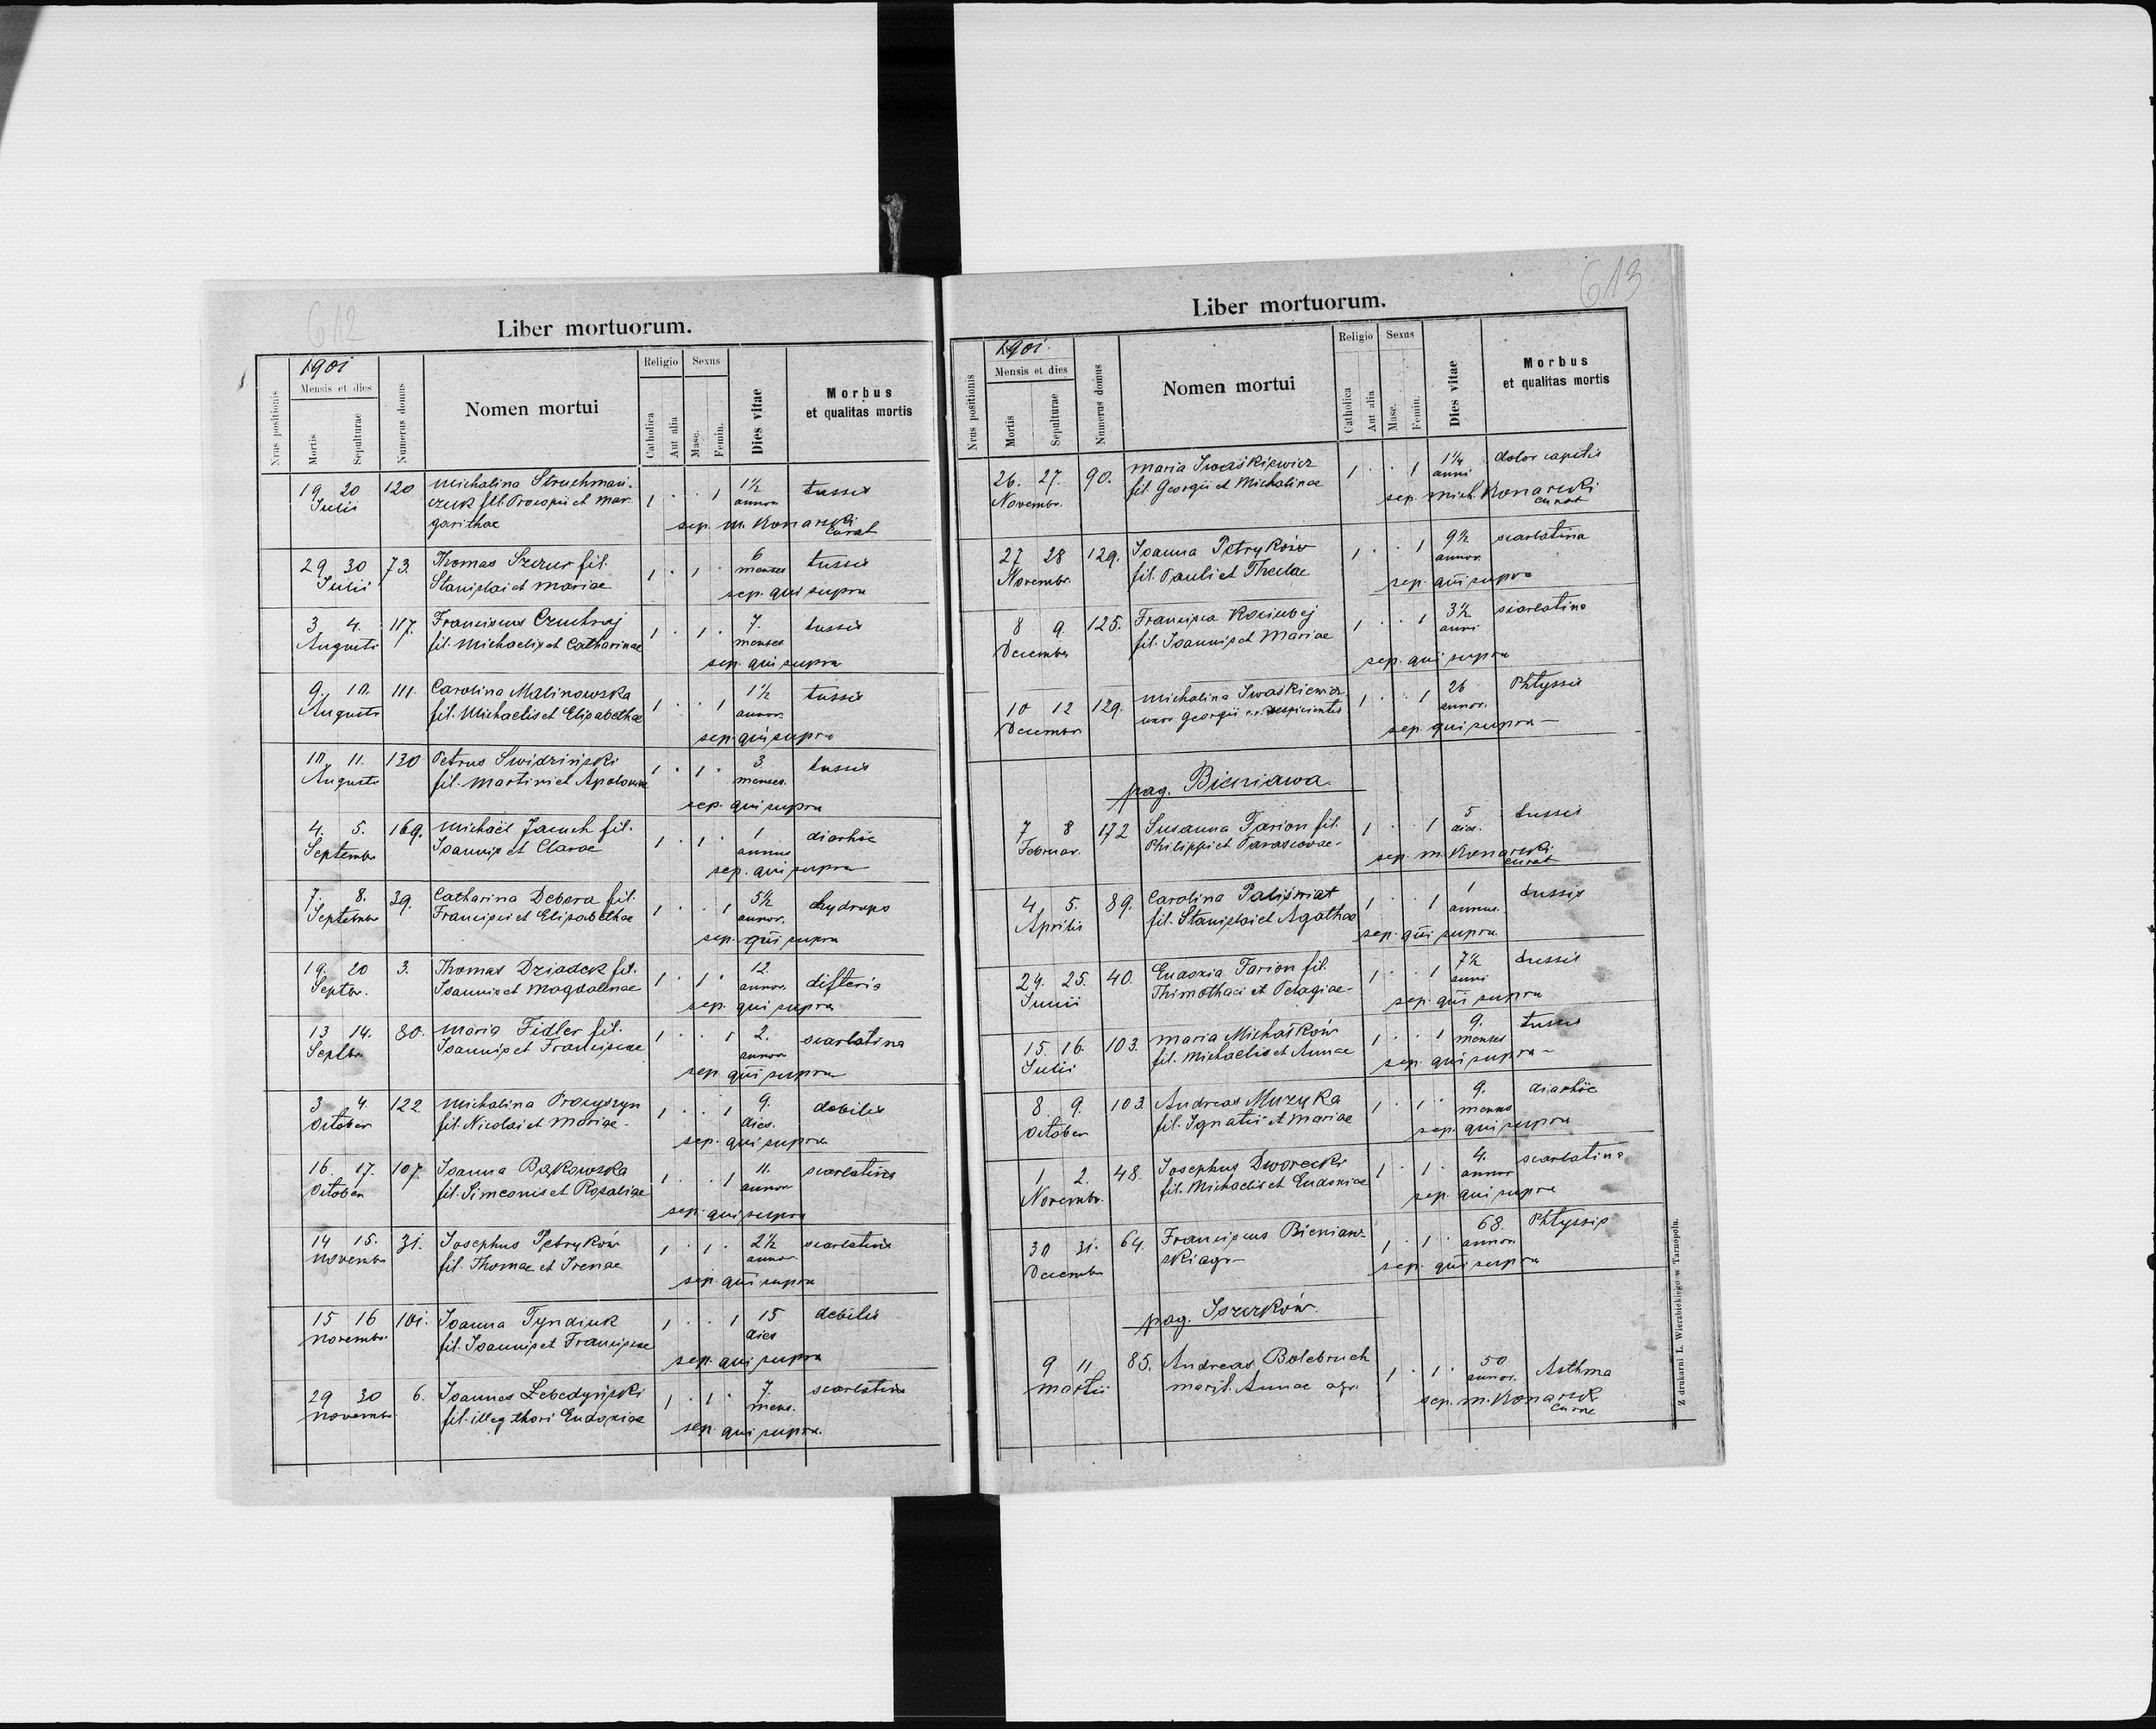 612
Liber mortuorum.
Nrus positionis
1901
Mensis et dies
Mortis
Sepulturae
Numerus domus
Nomen mortui
Religio
Catholica
Aut alia
Sexus
Masc.
Femin.
Dies vitae
Morbus
et qualitas mortis
19 20 120 Michalina Struchman-
Julii czuk fil. Procopii et Mar- 1 . . 1 1½ annor. tussis
garithae sep. M. Konarski
Curat
29. 30 73. Thomas Szczur fil. 6
Julii Stanislai et Mariae 1 . 1 . menses tussis
sep. qui supra
3 4. 117. Franciscus Czuchraj 7.
Augusti fil. Michaelis et Catharinae 1 . 1 . menses tussis
sep. qui supra
9. 10. 111. Carolina Malinowska 1½
Augusti fil. Michaelis et Elisabethae 1 . . 1 annor. tussis
sep. qui supra
10. 11. 130 Petrus Swidziński 3
Augusti fil. Martini et Apolonia 1 . 1 . menses. tussis
sep. qui supra
4. 5. 169. Michaël Jauch fil. 1
Septembr Joannis et Clarae 1 . 1 . annus diarhöe
sep. qui supra
7. 8. 39. Catharina Debera fil. 5½
Septembr Francisci et Elisabethae 1 . . 1 annor. hydrops
sep. qui supra
19. 20 3. Thomas Dziadek fil. 12.
Septbr. Joannis et Magdalenae 1 . 1 . annor. difteris
sep. qui supra
13 14. 80. Maria Fidler fil. 2.
Septbr Joannis et Franciscae 1 . . 1 annor. scarlatina
sep. qui supra
3 4. 122. Michalina Procyszyn 9.
October fil. Nicolai et Mariae - 1 . . 1 dies. debilis
sep. qui supra
16. 17. 107. Joanna Bąkowska 11.
October fil. Simeonis et Rosaliae 1 . . 1 annor scarlatina
sep. qui supra
14 15. 31. Josephus Petryków 2½
Novembr fil. Thomae et Irenae 1 . 1 . annor. scarlatina
sep. qui supra
15 16 101. Joanna Tyndiuk 15
Novembr. fil. Joannis et Franciscae 1 . . 1 dies debilis
sep. qui supra
29 30 6. Joannes Lebedyński 7.
Novembr. fil. illeg. thori Eudoxiae 1 . 1 . mens. scarlatina
sep. qui supra.
613
Liber mortuorum.
Nrus positionis
1901.
Mensis et dies
Mortis
Sepulturae
Numerus domus
Nomen mortui
Religio
Catholica
Aut alia
Sexus
Masc.
Femin.
Dies vitae
Morbus
et qualitas mortis
26. 27. 90. Maria Iwaśkiewicz 1¼ dolor capitis
Novembr. fil. Georgii et Michalinae 1 . . 1 anni
sep. Mich. Konarski
Curat
27 28 129. Joanna Petryków 9½ scarlatina
Novembr. fil. Pauli et Theclae 1 . . 1 annor.
sep. qui supra
8 9. 125. Francisca Kociubej 3½ scarlatina
December fil. Joannis et Mariae 1 . . 1 anni
sep. qui supra
10 12 129. Michalina Iwaśkiewicz 26 Phtyssis
Decembr uxor Georgii 1 . . 1 annor.
sep. qui supra -
pag. Bieniawa.
7 8 172 Susanna Farion fil. 5 tussis
Februar. Philippi et Parascevae - 1 . . 1 dies.
sep. M. Konarski
Curat
4. 5. 89. Carolina Paliśniat 1 tussis
Aprilis fil. Stanislai et Agathae 1 . . 1 annus.
sep. qui supra.
24. 25. 40. Eudoxia Farion fil. 7½ tussis
Junii Thimothaei et Pelagiae - 1 . . 1 anni
sep. qui supra
15. 16. 103. Maria Michaśków 9. tussis
Julii fil. Michaelis et Annae 1 . . 1 menses
sep. qui supra -
8. 9. 103. Andreas Muzyka 9. diarhöe
October fil. Ignatii et Mariae 1 . 1 . menses
sep. qui supra
1 2. 48. Josephus Dworecki 4. scarlatina
Novembr. fil. Michaelis et Eudoxiae 1 . 1 . annor
sep. qui supra
30 31. 64. Franciscus Bieniaw- 68. Phtyssis
Decembr ski agr - 1 . 1 . annor.
sep. qui supra
pag. Iszczków.
9 11 85. Andreas Bolebruch 50 Asthma
Martii marit. Annae agr. 1 . 1 . annor.
sep. M. Konarski
Curat
Z drukarni L. Wierzbickiego w Tarnopolu.